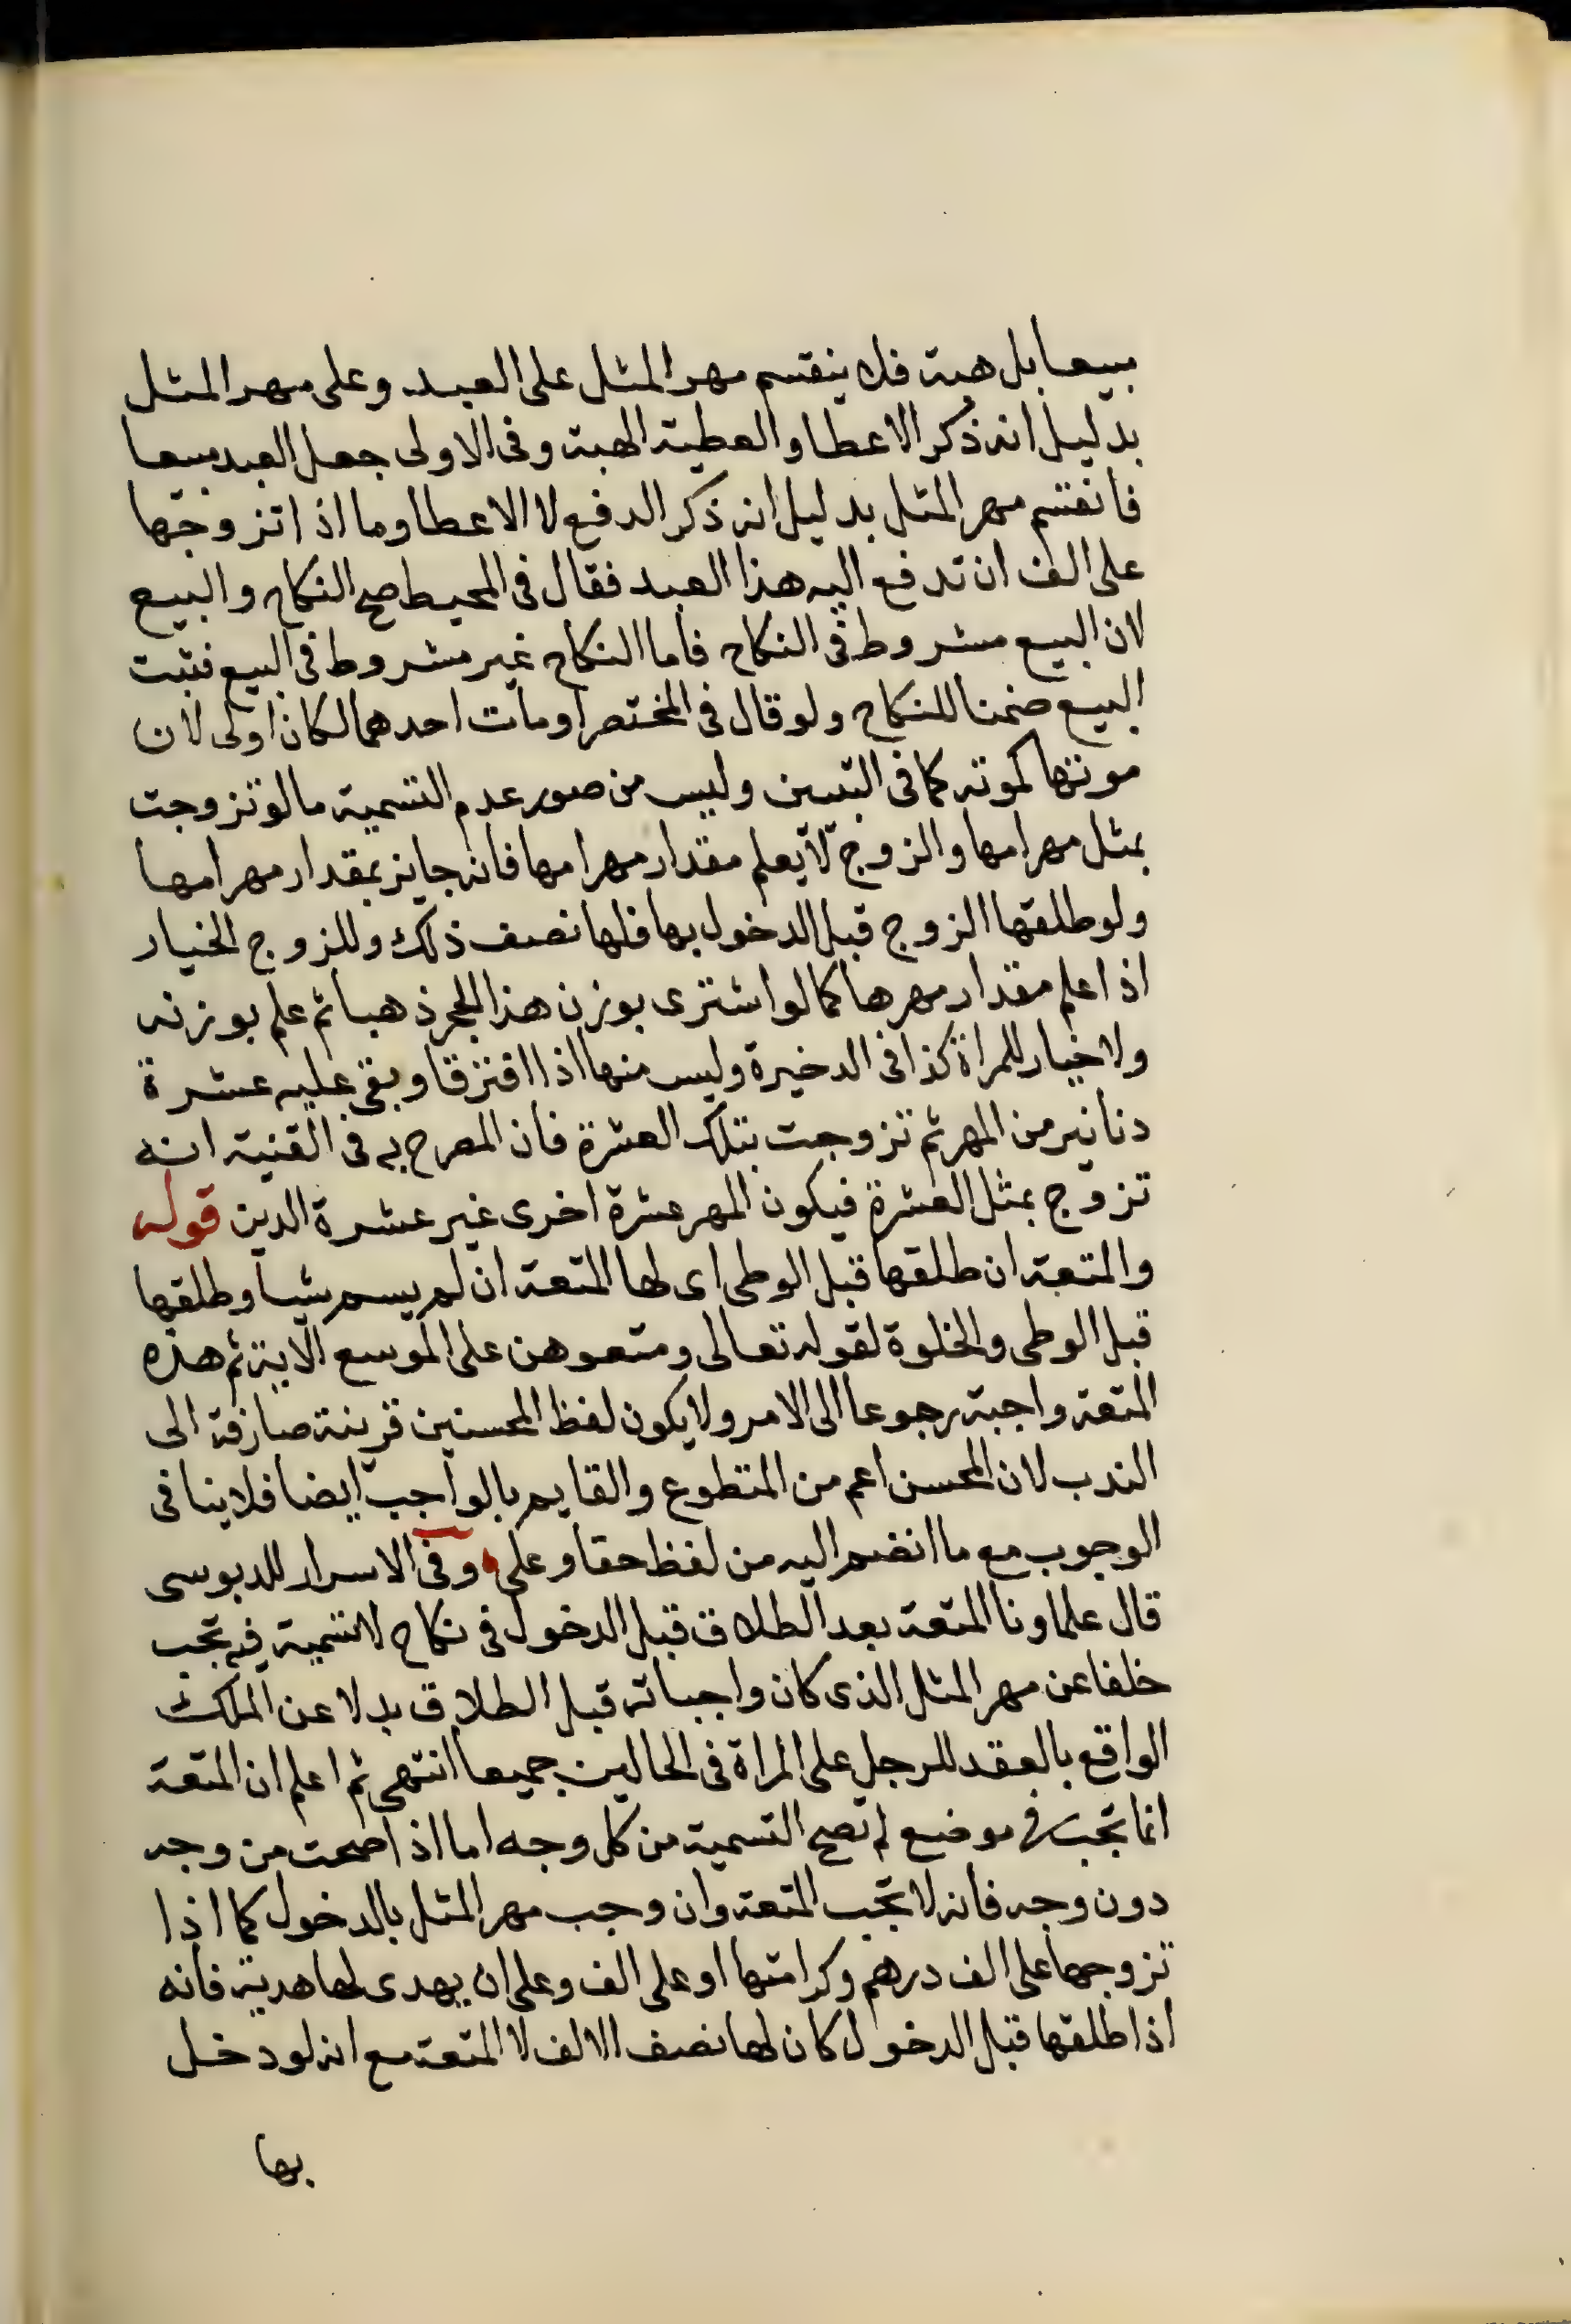 بيعا بل هبة فلا ينقسم مهر المثل على العبد وعلى مهر المثل
بدليل انه ذكر الاعطا والعطية الهبة وفى الاولى جعل العبد مبيعا
فانقسم مهر المثل بدليل انه ذكر الدفع لا الاعطا وما اذا تزوجها
على الف ان تدفع اليه هذا العبد فقال فى المحيط صح النكاح والبيع
لان البيع مشروط فى النكاح فاما النكاح غير مشروط فى البيع فثبت
البيع ضمنا للنكاح ولو قال فى المختصر او مات احدهما لكان اولى لان
موتها كموته كما فى التبيين وليس من صور عدم التسمية ما لو تزوجت
بمثل مهر امها والزوج لا يعلم مقدار مهر امها فانه جايز بمقدار مهر امها
ولو طلقها الزوج قبل الدخول بها فلها نصف ذلك وللزوج الخيار
اذا علم مقدار مهرها كما لو اشترى بوزن هذا الحجر ذهبا ثم علم بوزنه
ولا خيار للمراة كذا فى الدخيرة وليس منها اذا افترقا وبقى عليه عشرة
دنانير من المهر ثم تزوجت بتلك العشرة فان المصرح به فى القنية انه
تزوج بمثل العشرة فيكون المهر عشرة اخرى غير عشرة الدين قوله
والمتعة ان طلقها قبل الوطى اى لها المتعة ان لم يسم شيا وطلقها
قبل الوطى والخلوة لقوله تعالى ومتعوهن على الموسع الاية ثم هذه
المتعة واجبة رجوعا الى الامر ولا يكون لفظ المحسنين قرينة صارفة الى
الندب لان المحسن اعم من المتطوع والقايم بالواجب ايضا فلا ينافى
الوجوب مع ما انضم اليه من لفظ حقا وعلى وفى الاسرار للدبوسى
قال علماونا المتعة بعد الطلاق قبل الدخول فى نكاح لا تسمية فيه تجب
خلفا عن مهر المثل الذى كان واجبا له قبل الطلاق بدلا عن الملك
الواقع بالعقد للرجل على المراة فى الحالين جميعا انتهى ثم اعلم ان المتعة
انما تجب فى موضع لم تصح التسمية من كل وجه اما اذا صحت من وجه
دون وجه فانه لا تجب المتعة وان وجب مهر المثل بالدخول كما اذا
تزوجها على الف درهم وكرامتها او على الف وعلى ان يهدى لها هدية فانه
اذا طلقها قبل الدخول كان لها نصف الالف لا المتعة مع انه لو دخل
بها